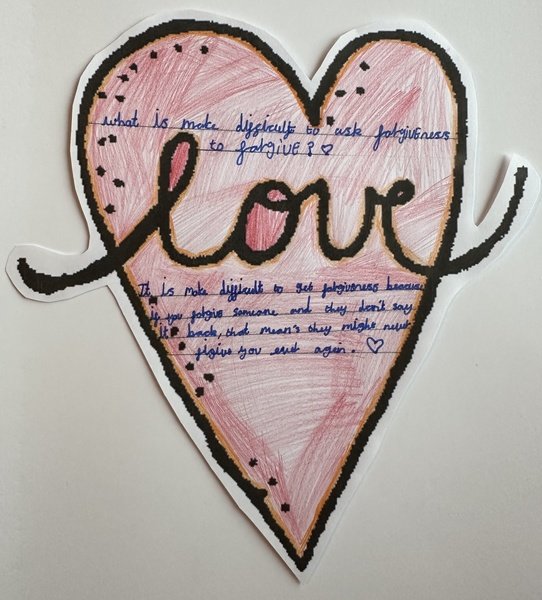 what is make difficult to ask forgiveness
to forgive? ♡
love
It is make difficult to get forgiveness because
if you forgive someone and they don't say
it back, that mean's they might never
figive you ever again. ♡